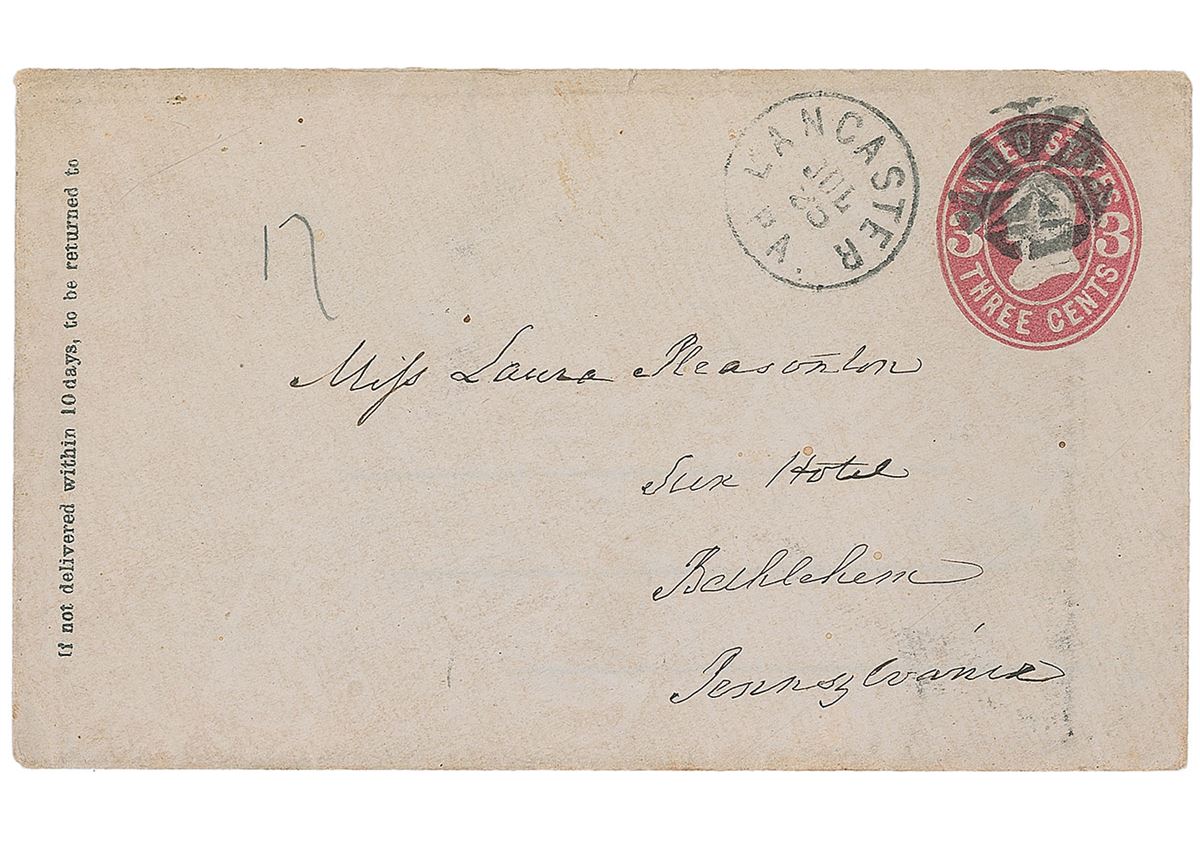 If not delivered within 10 days, to be returned to
LANCASTER PA.
JUL
20
UNITED STATES
3 3
THREE CENTS
Miss Laura Pleasonton
Sun Hotel
Bethlehem
Pennsylvania